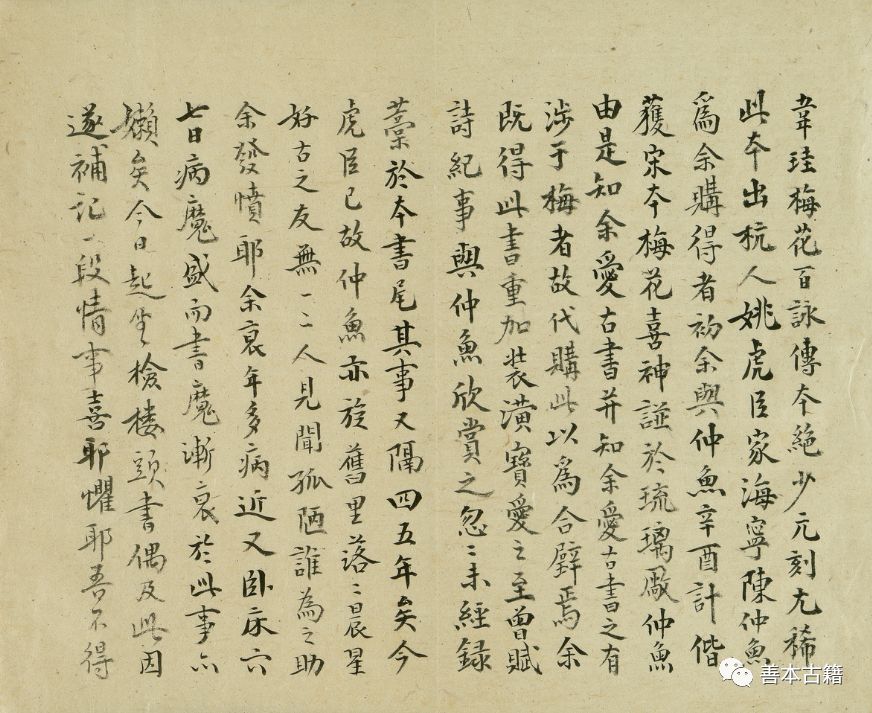 韋珪梅花百詠傳本絕少元刻尤稀
此本出杭人姚虎臣家海寧陳仲魚
為余購得者初余與仲魚辛酉計偕
獲宋本梅花喜神譜於琉璃厰仲魚
由是知余愛古書并知余愛古書之有
涉于梅者故代購此以為合璧焉余
既得此書重加裝潢寶愛之至曾賦
詩紀事與仲魚欣賞之忽〻未經錄
藁於本書尾其事又隔四五年矣今
虎臣已故仲魚亦旋舊里落〻晨星
好古之友無一二人見聞孤陋誰為之助
余發憤耶余衰年多病近又臥床六
七日病魔盛而書魔漸衰於此事亦
嬾矣今日起坐檢樓頭書偶及此因
遂補記一段情事喜耶懼耶吾不得
善本古籍